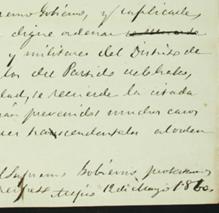 remo Gobierno, y suplicarle
digne ordenar
y militares del Distrito de
los del Partido
dad, se recuerde la citada
rán prevenidos muchos casos
trascendentales al orden
Supremo Gobierno, protestamos
Mayo 1860.